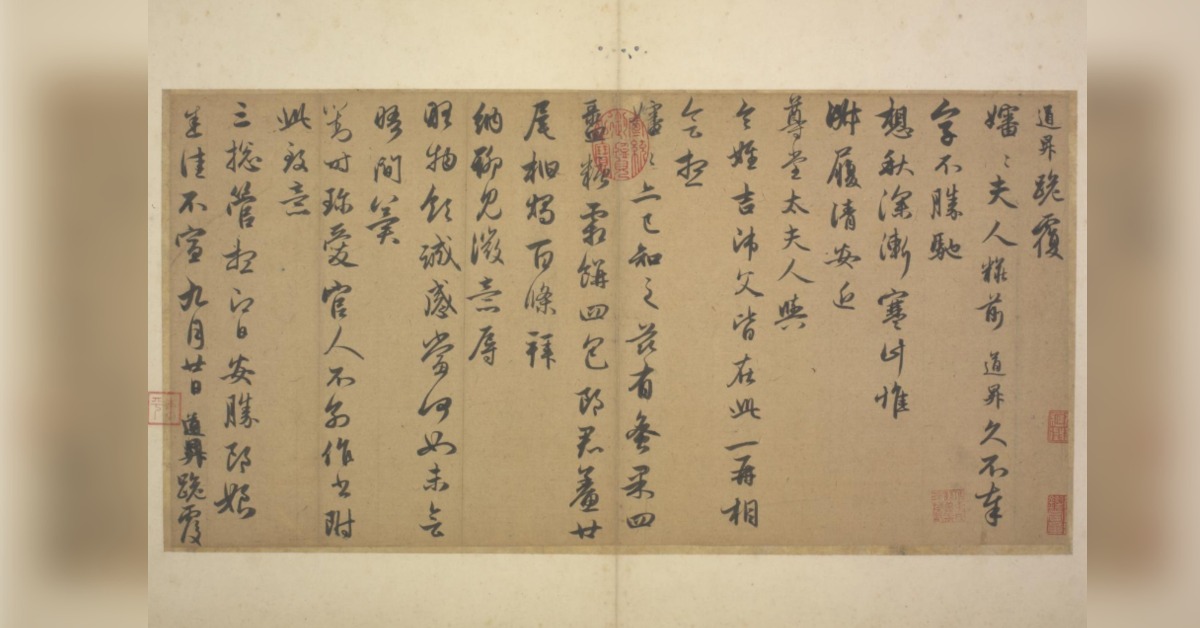 道昇跪覆
嬸〻夫人糚前 道昇久不奉
字不勝馳
想秋深漸寒計惟
淑履清安近
尊堂太夫人與
令姪吉師父皆在此一再相
會想
嬸〻亦已知之茲有蜜果四
盝糖霜餅四包郎君鯗廿
尾柏燭百條拜
納聊見微意辱
略物領誠感當何如未會
晤間冀
對時珍愛官人不別作書附
此致意
三總管想即日安勝郎娘
悉佳不宣九月廿日道昇跪覆